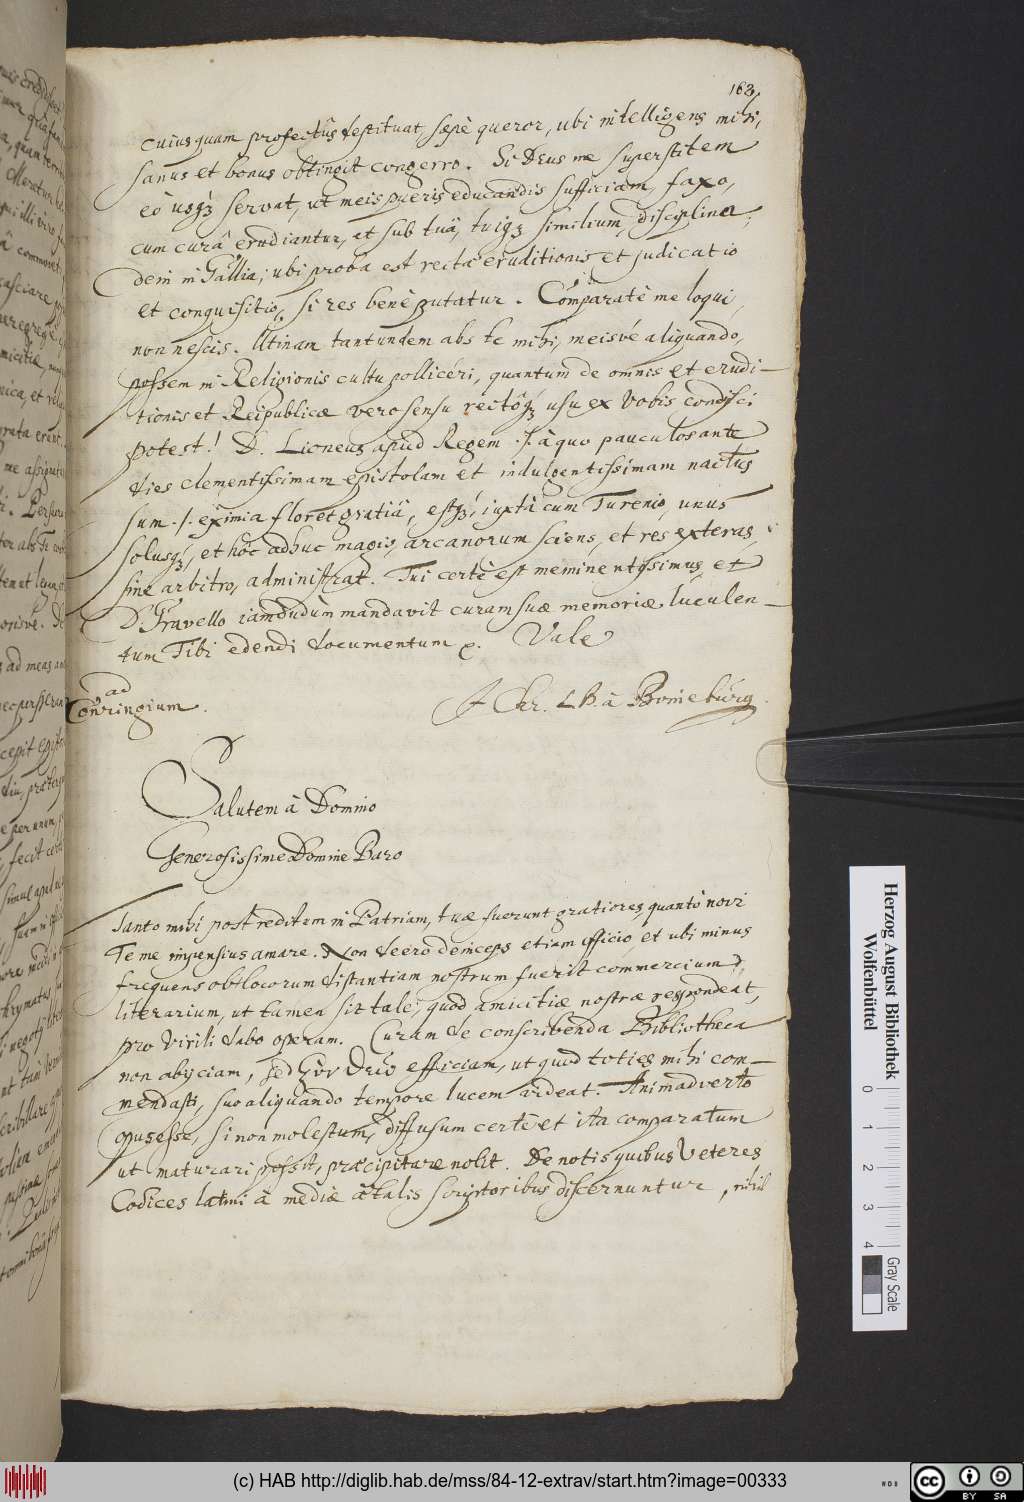 163
cuiusquam profectûs destituat, sæpè queror, ubi intelligens mihi,
sanus et bonus obtingit congerro. Si Deus me superstitem
eò usq3 servat, ut meis pueris educandis sufficiam, faxo,
cum curâ erudiantur, et sub tuâ, tuiq3 similium, disciplina;
dein in Gallia, ubi proba est rectæ eruditionis et judicatio
et conquisitio, si res benè putatur. Comparatè me loqui,
non nescis. Utinam tantundem abs te mihi, meisvé aliquando,
possem in Religionis cultu polliceri, quantum de omnis et erudi-
tionis et Reipublicæ vero sensu rectoq3 usu ex Vobis condisci
potest! D. Lioneus apud Regem ./. à quo pauculos ante
dies clementissimam epistolam et indulgentissimam nactus
sum ./. eximia floret gratiâ, estq3, iuxtà cum Turenio, unus
solusq3, et hôc adhuc magis, arcanorum sciens, et res exteras,
sine arbitro, administrat. Tui certè est meminentissimus, et
D. Gravello iamdudùm mandavit curam suæ memoriæ luculen-
tum Tibi edendi documentum. Vale
J Chr. L B. à Boineburg
ad
Conringium.
Salutem à Domino
Generosissime Domine Baro
Tanto mihi post reditem in Patriam, tuæ fuerunt gratiores, quantò novi
Te me impensius amare. Non veero deinceps etiam officio et ubi minus
frequens ob locorum distantiam nostrum fuerit commercium
literarium, ut tamen sit tale, quod amicitiæ nostræ respondeat,
pro virili dabo operam. Curam de conscribenda Bibliotheca
non abijciam, sed efficiam, ut quod toties mihi com-
mendasti, suo aliquando tempore lucem videat. Animadverto
opus esse, si non molestum, diffusum certè et ita comparatum
ut maturari possit, præcipitare nolit. De notis quibus Veteres
Codices latini à mediæ ætatis scriptoribus discernuntur, nihil
Herzog August Bibliothek
Wolfenbüttel
0 1 2 3 4
Gray Scale
(c) HAB http://diglib.hab.de/mss/84-12-extrav/start.htm?image=00333
cc BY SA